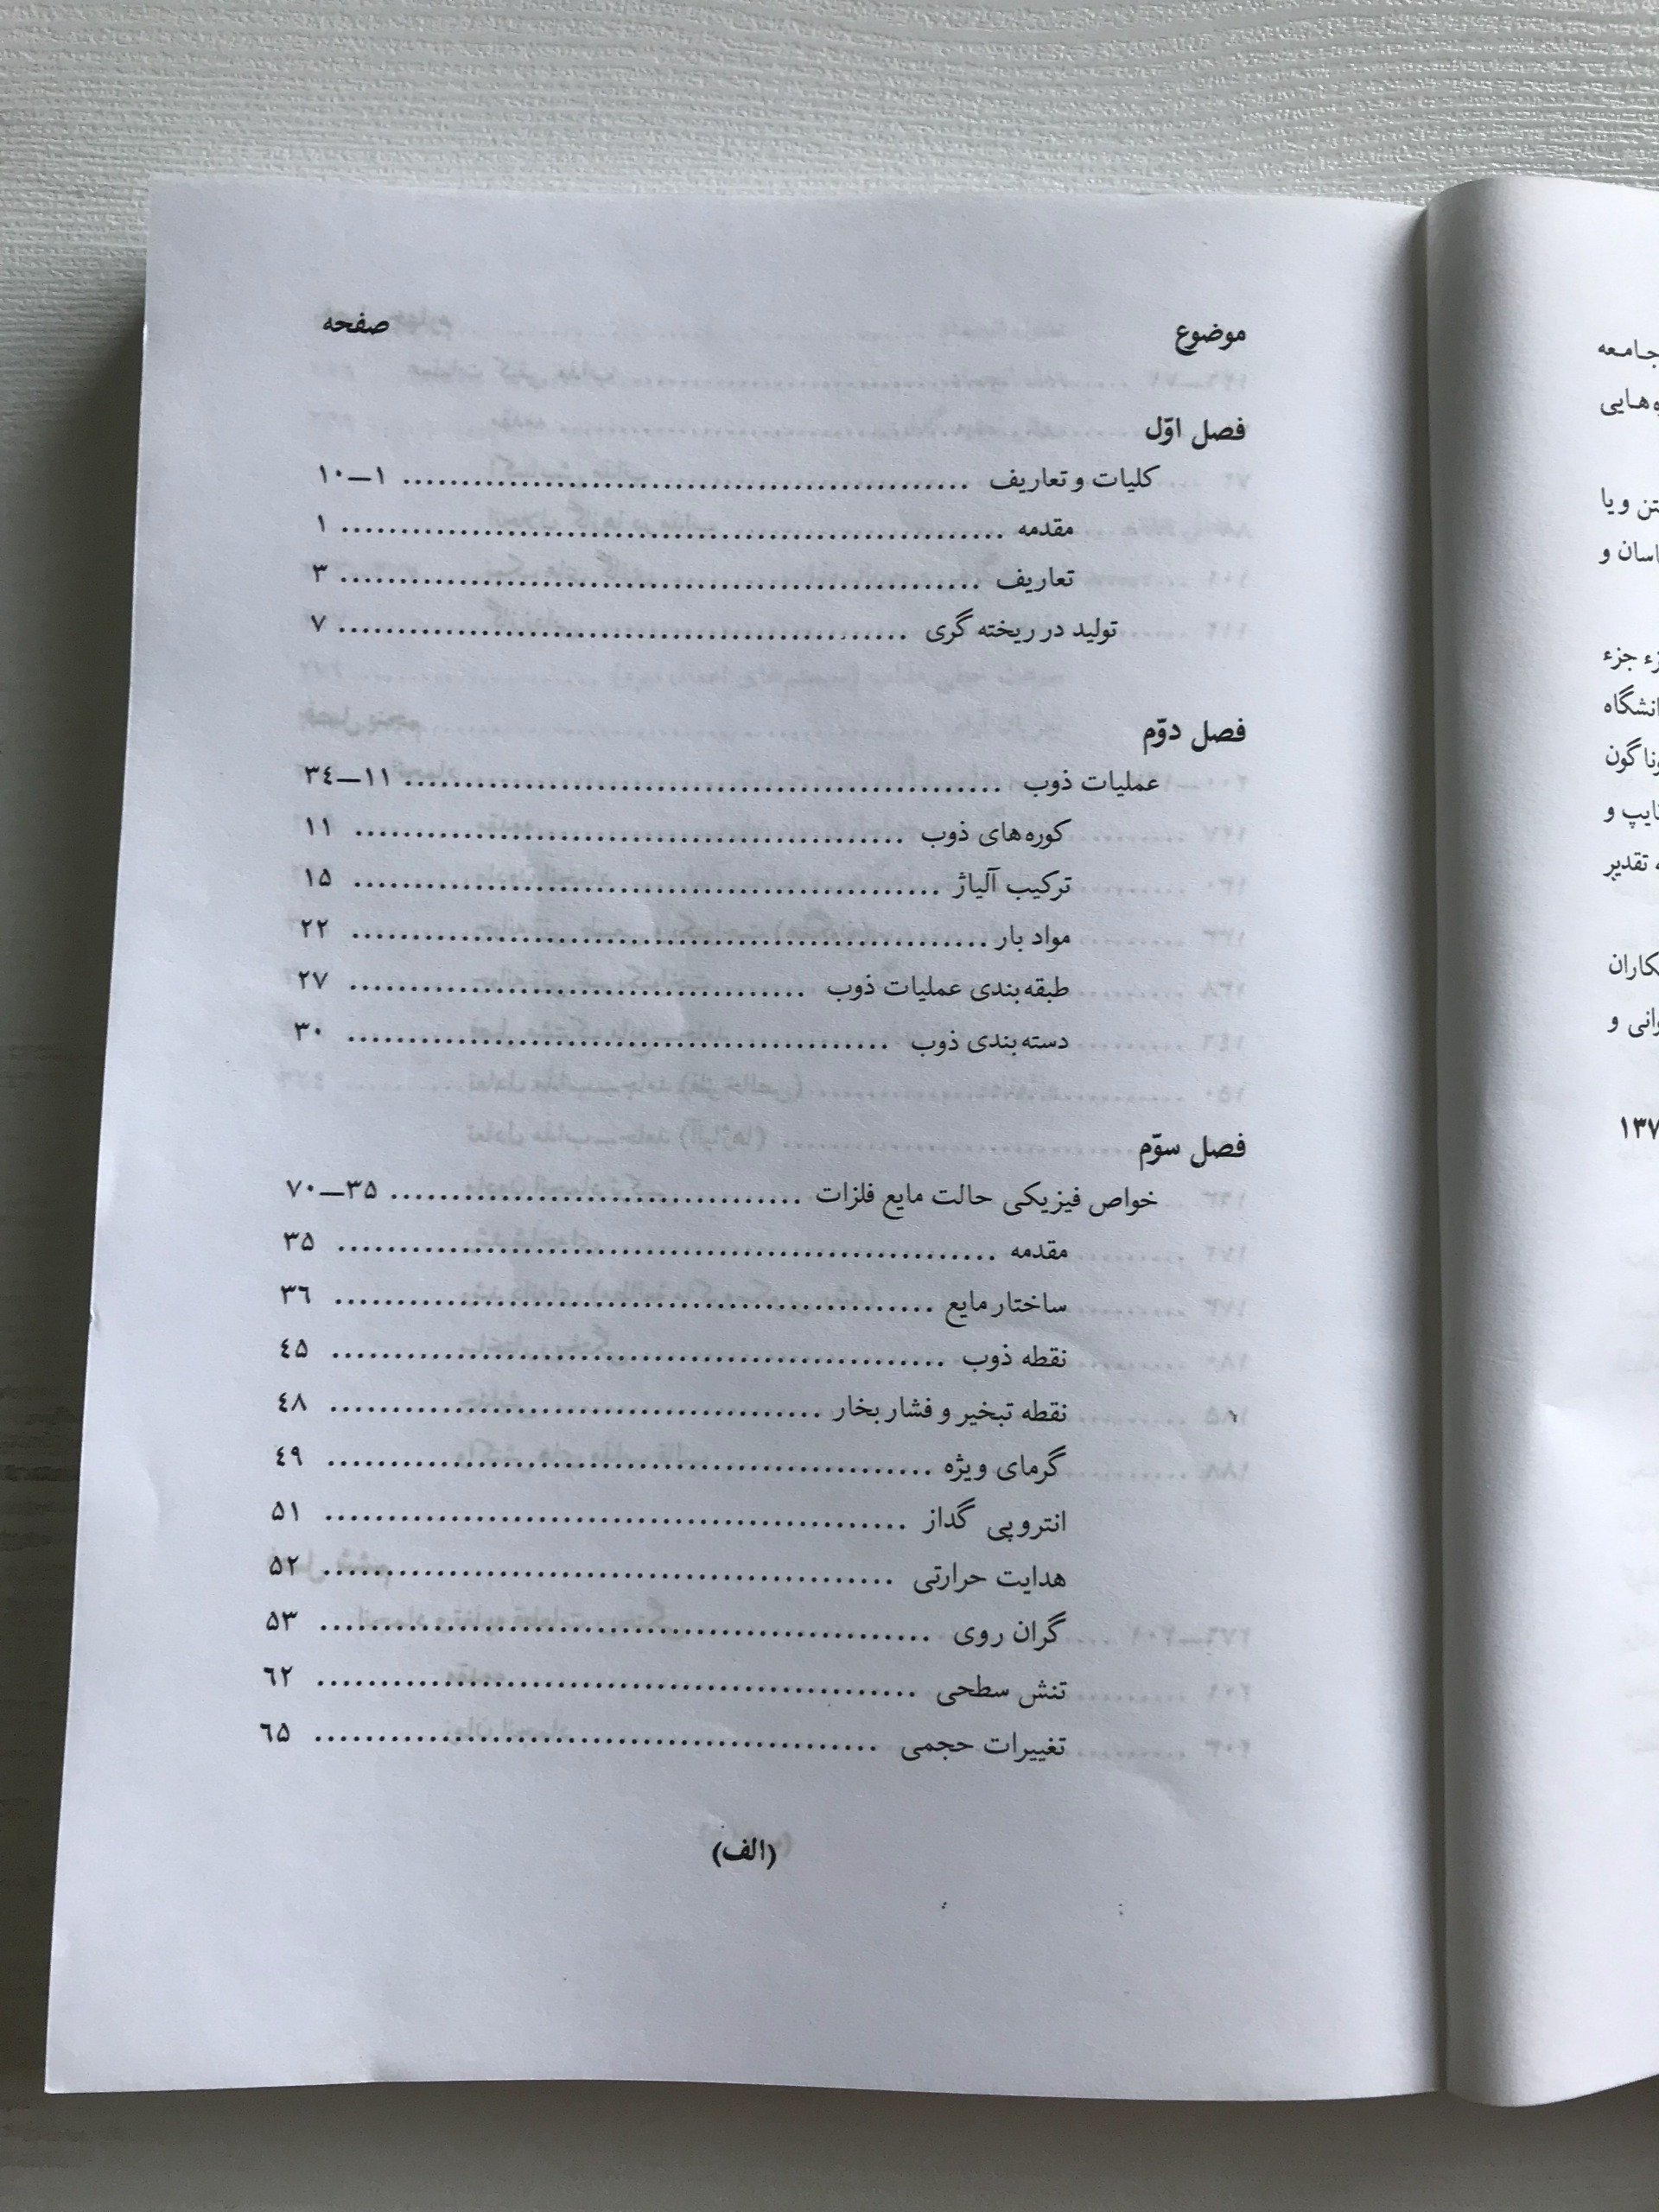 موضوع صفحه
فصل اوّل
کلیات و تعاریف ........ ۱ــ۱۰
مقدمه ........ ۱
تعاریف ........ ۳
تولید در ریخته گری ........ ۷
فصل دوّم
عملیات ذوب ........ ۱۱ــ۳٤
کوره‌های ذوب ........ ۱۱
ترکیب آلیاژ ........ ۱۵
مواد بار ........ ۲۲
طبقه‌بندی عملیات ذوب ........ ۲۷
دسته‌بندی ذوب ........ ۳۰
فصل سوّم
خواص فیزیکی حالت مایع فلزات ........ ۳۵ــ۷۰
مقدمه ........ ۳۵
ساختار مایع ........ ۳٦
نقطه ذوب ........ ٤۵
نقطه تبخیر و فشار بخار ........ ٤۸
گرمای ویژه ........ ٤۹
انتروپی گداز ........ ۵۱
هدایت حرارتی ........ ۵۲
گران روی ........ ۵۳
تنش سطحی ........ ٦۲
تغییرات حجمی ........ ٦۵
(الف)
جامعه
تن و یا
جزء
و
تقدیر
و
۱۳۷